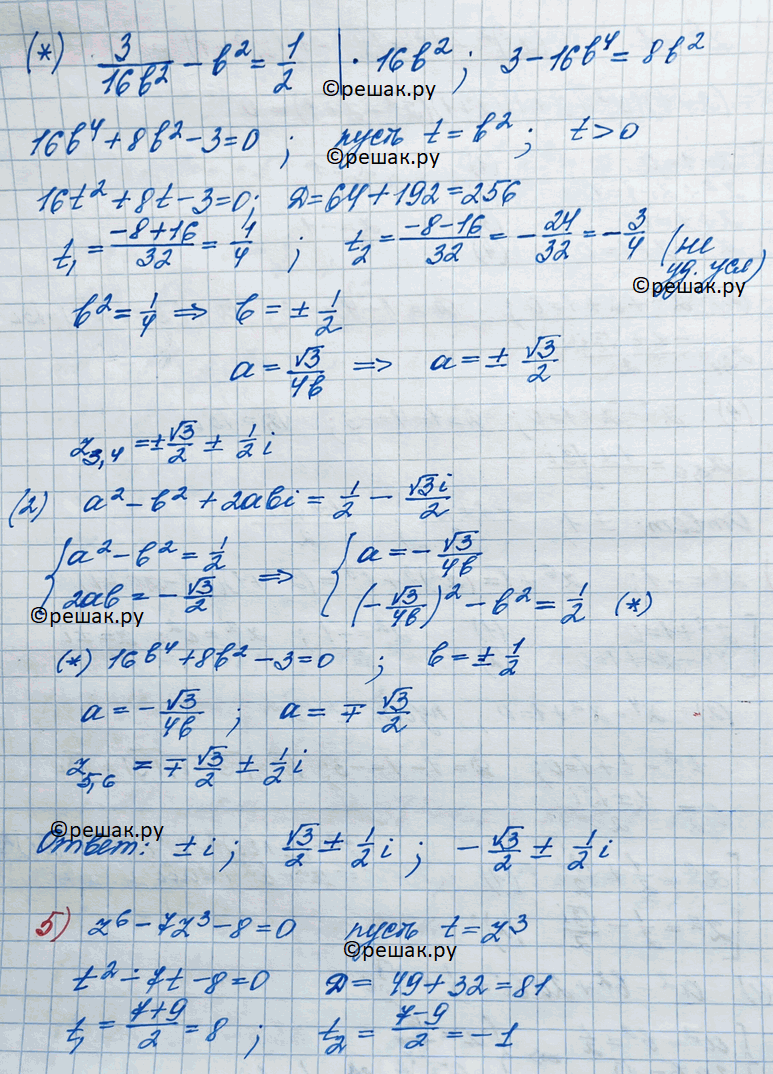 (*) 3/(16b²) − b² = 1/2 | · 16b² ; 3 − 16b⁴ = 8b²
©решак.ру
16b⁴ + 8b² − 3 = 0 ; пусть t = b² ; t > 0
©решак.ру
16t² + 8t − 3 = 0; D = 64 + 192 = 256
t₁ = (−8+16)/32 = 1/4 ; t₂ = (−8−16)/32 = −24/32 = −3/4 (не уд. усл)
©решак.ру
b² = 1/4 ⇒ b = ± 1/2
a = √3/(4b) ⇒ a = ± √3/2
z₃,₄ = ± √3/2 ± 1/2 i
(2) a² − b² + 2abi = 1/2 − √3i/2
{ a² − b² = 1/2 ⇒ { a = − √3/(4b)
2ab = − √3/2 (− √3/(4b))² − b² = 1/2 (*)
©решак.ру
(*) 16b⁴ + 8b² − 3 = 0 ; b = ± 1/2
a = − √3/(4b) ; a = ∓ √3/2
z₅,₆ = ∓ √3/2 ± 1/2 i
©решак.ру
Ответ: ± i ; √3/2 ± 1/2 i ; − √3/2 ± 1/2 i
5) z⁶ − 7z³ − 8 = 0 пусть t = z³
©решак.ру
t² − 7t − 8 = 0 D = 49 + 32 = 81
t₁ = (7+9)/2 = 8 ; t₂ = (7−9)/2 = −1